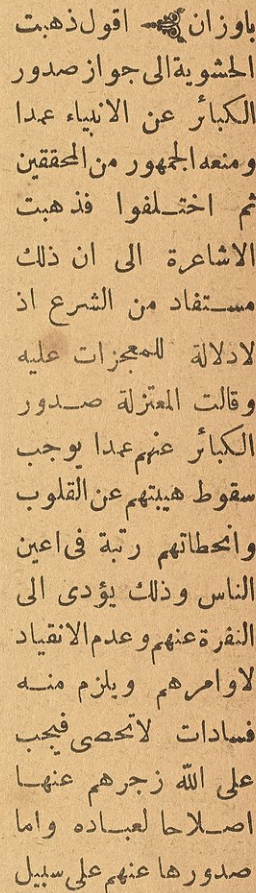 باوزان اقول ذهبت
الحشوية الى جواز صدور
الكبائر عن الانبياء عمدا
ومنعه الجمهور من المحققين
ثم اختلفوا فذهبت
الاشاعرة الى ان ذلك
مستفاد من الشرع اذ
لادلالة للمعجزات عليه
وقالت المعتزلة صدور
الكبائر عنهم عمدا يوجب
سقوط هيبتهم عن القلوب
وانحطاتهم رتبة فى اعين
الناس وذلك يؤدى الى
النفرة عنهم وعدم الانقياد
لاوامرهم ويلزم منه
فسادات لاتحصى فيجب
على الله زجرهم عنها
اصلاحا لعباده واما
صدورها عنهم على سبيل